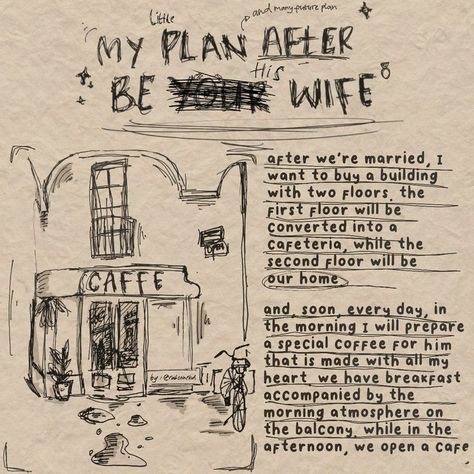 Little
and many future plan
MY PLAN AFTER
His
BE YOUR WIFE
after we're married, I
want to buy a building
with two floors. the
first floor will be
converted into a
cafeteria, while the
second floor will be
our home
CAFFE
OPEN
by :
and, soon, every day, in
the morning I will prepare
a special coffee for him
that is made with all my
heart. we have breakfast
accompanied by the
morning atmosphere on
the balcony. while in the
afternoon, we open a cafe